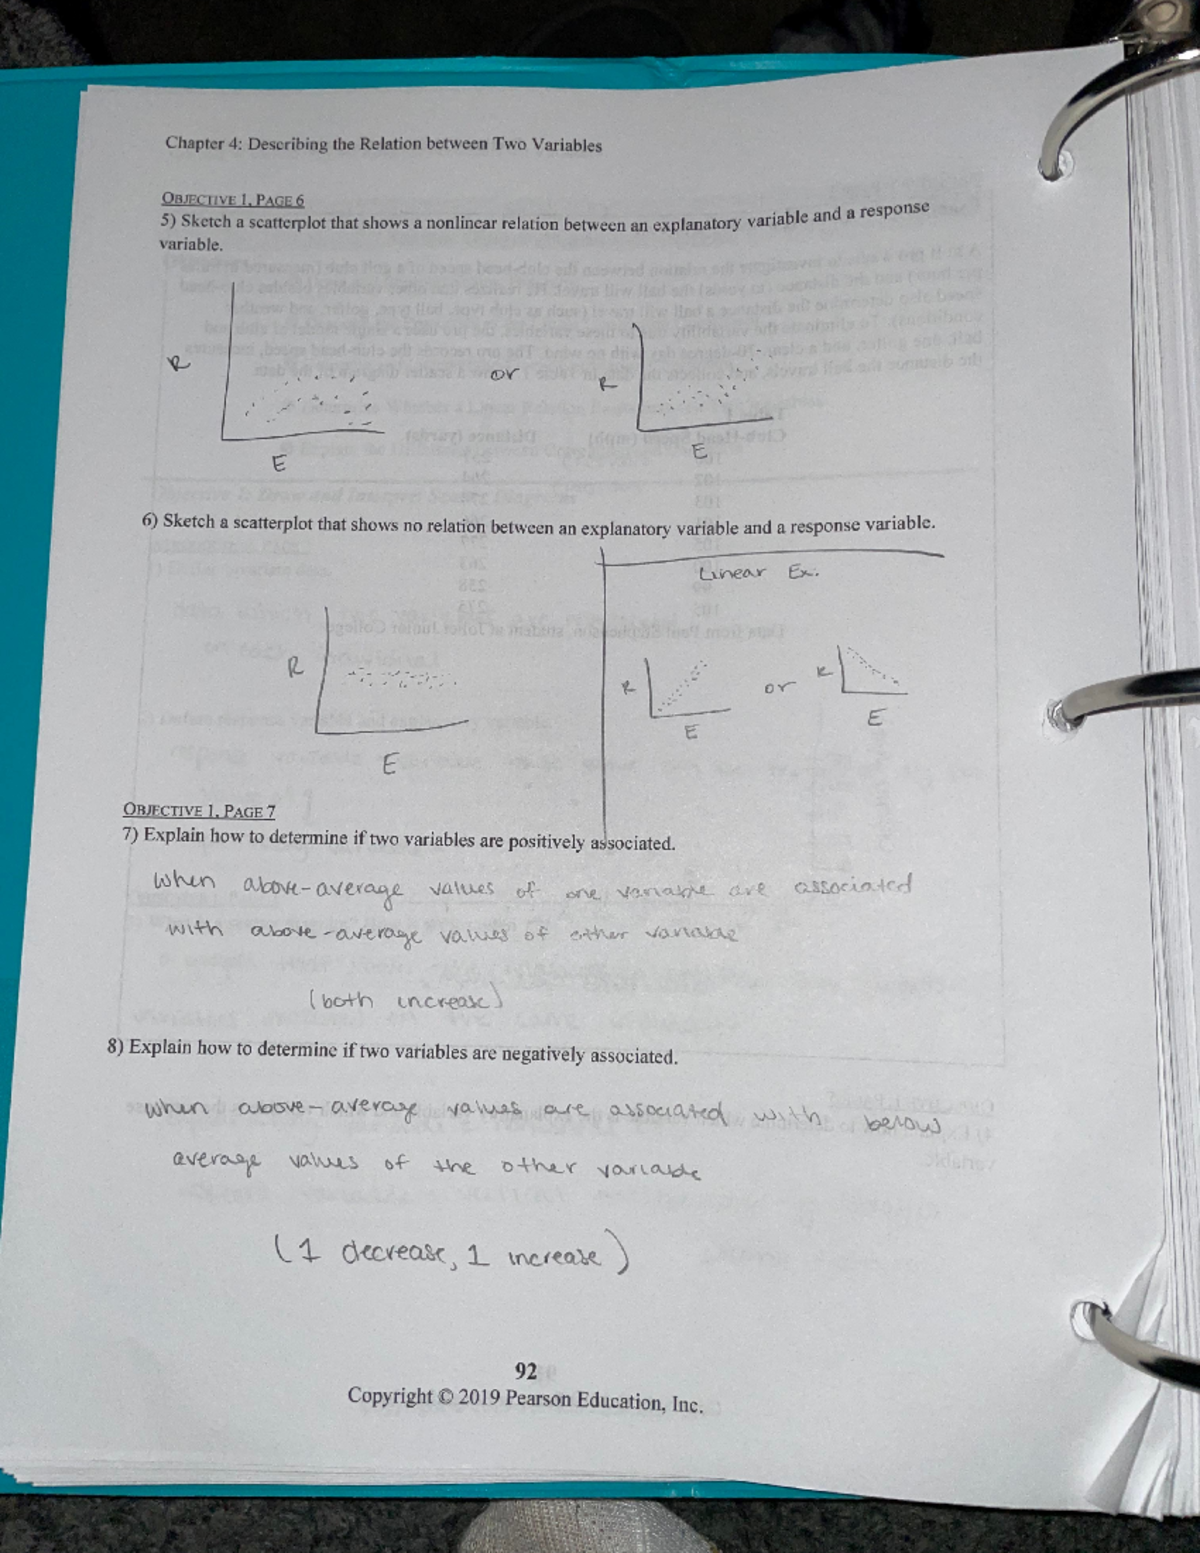 Chapter 4: Describing the Relation between Two Variables
OBJECTIVE 1, PAGE 6
5) Sketch a scatterplot that shows a nonlinear relation between an explanatory variable and a response
variable.
R
or
R
E
E
6) Sketch a scatterplot that shows no relation between an explanatory variable and a response variable.
Linear Ex.
R
R
or
R
E
E
E
OBJECTIVE 1, PAGE 7
7) Explain how to determine if two variables are positively associated.
When above-average values of one variable are associated
with above-average values of other variable
(both increase)
8) Explain how to determine if two variables are negatively associated.
When above-average values are associated with below
average values of the other variable
(1 decrease, 1 increase)
92
Copyright © 2019 Pearson Education, Inc.